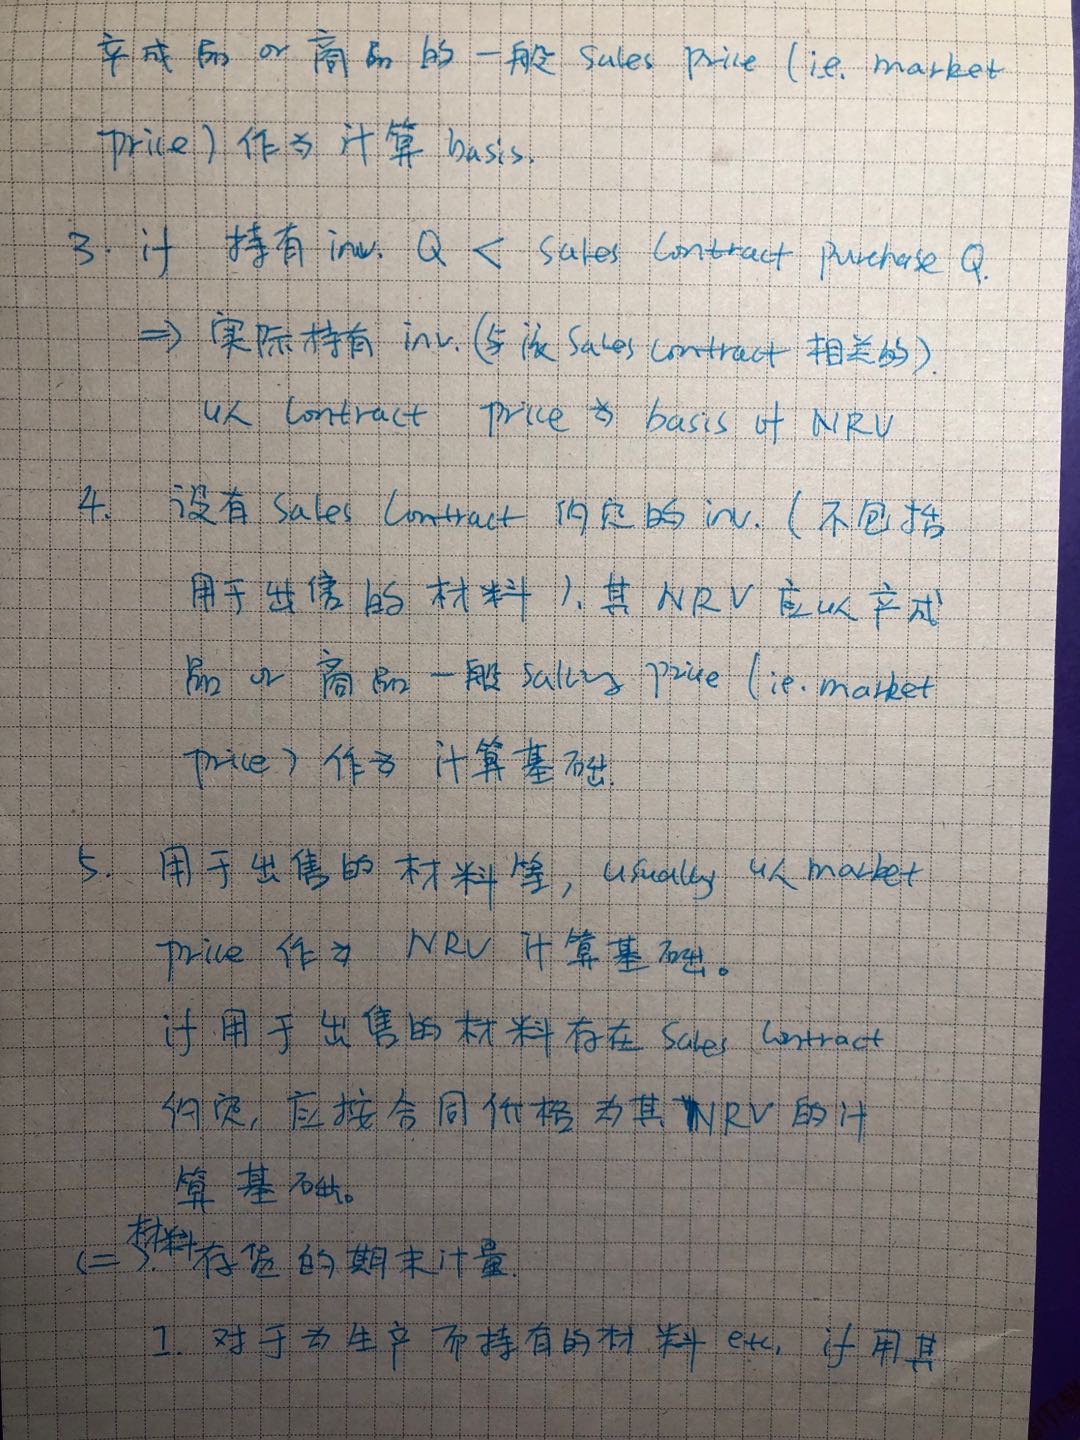 产成品 or 商品的一般 sales price (i.e. market
price) 作为计算 basis.
3. if 持有 inv. Q < sales contract purchase Q.
⇒ 实际持有 inv. (与该 sales contract 相关的).
以 contract price 为 basis of NRV
4. 没有 sales contract 约定的 inv. (不包括
用于出售的材料), 其 NRV 应以产成
品 or 商品一般 selling price (ie. market
price) 作为 计算基础.
5. 用于出售的材料等, usually 以 market
price 作为 NRV 计算基础。
if 用于出售的材料存在 sales contract
约定, 应按合同价格为其 NRV 的计
算基础。
(二). 材料存货的期末计量.
1. 对于为生产而持有的材料 etc, if 用其